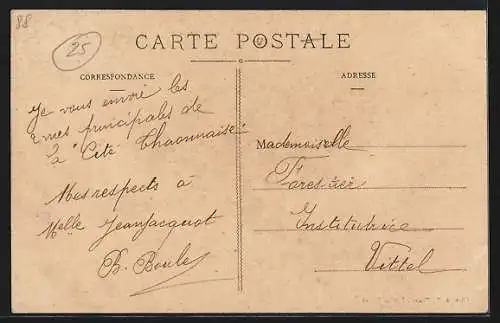 88
25
CARTE POSTALE
CORRESPONDANCE
Je vous envoie les
2 vues principales de
la "Cité Thaonnaise"
Mes respects à
Melle Jeanjacquot
B. Boule
ADRESSE
Mademoiselle
Forestier
Institutrice
Vittel